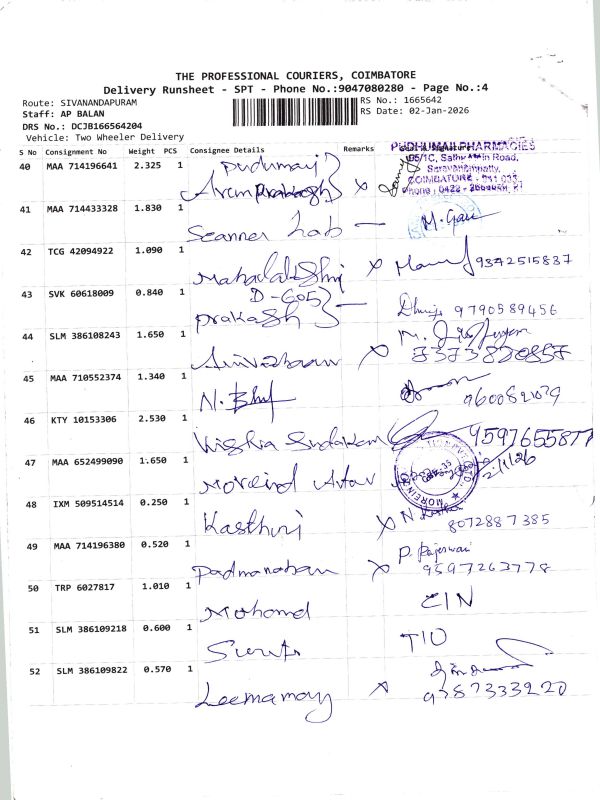 THE PROFESSIONAL COURIERS, COIMBATORE
Delivery Runsheet - SPT - Phone No.:9047080280 - Page No.:4
Route: SIVANANDAPURAM
RS No.: 1665642
Staff: AP BALAN
RS Date: 02-Jan-2026
DRS No.: DCJB166564204
Vehicle: Two Wheeler Delivery
S No Consignment No Weight PCS Consignee Details Remarks
40 MAA 714196641 2.325 1 Pudumai
Arun Prakash x
PUDHUMAI PHARMACIES
Road,
Saravanampatty,
COIMBATORE
41 MAA 714433328 1.830 1
Scanner Lab — M. Gau
42 TCG 42094922 1.090 1
Mahadalakshmi x 9342515837
43 SVK 60618009 0.840 1 D-605
Prakash — 9790589456
44 SLM 386108243 1.650 1
x 7373820857
45 MAA 710552374 1.340 1
N.
46 KTY 10153306 2.530 1
9597655877
47 MAA 652499090 1.650 1
2/1/26
48 IXM 509514514 0.250 1
Kasthuri x N
8072887385
49 MAA 714196380 0.520 1
Padmanaban x P. Rajeswari
9597263778
50 TRP 6027817 1.010 1
Mohamd CIN
51 SLM 386109218 0.600 1
TIO
52 SLM 386109822 0.570 1
Leemamary x 9787333220